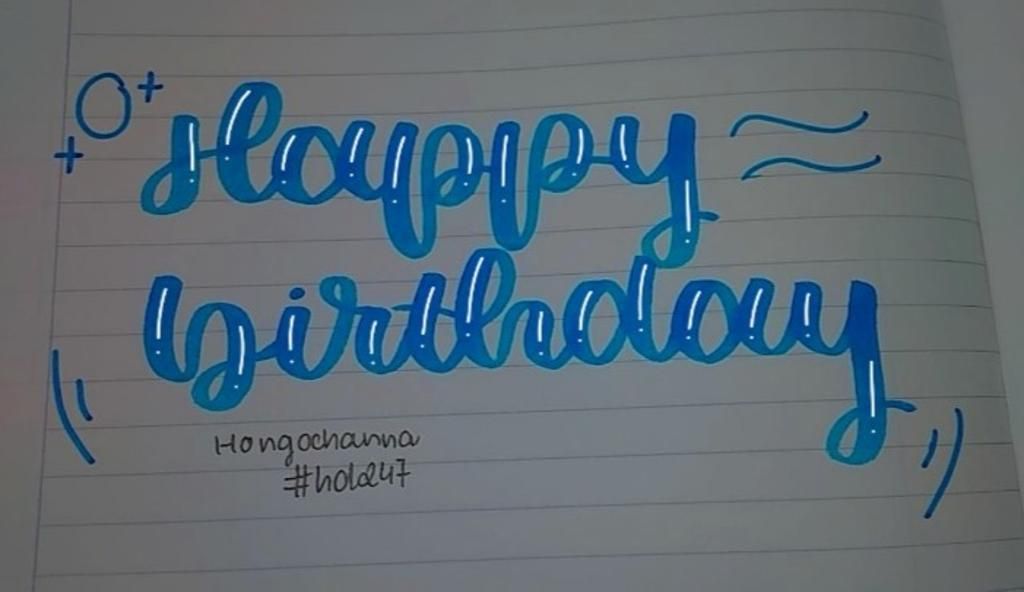 Happy
birthday
Hongochanna
#hola247